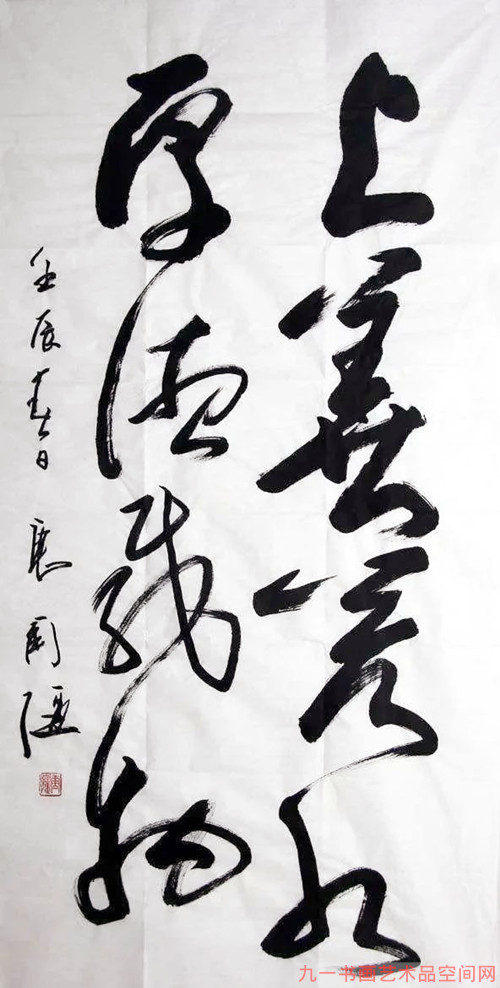 上善若水
厚德载物
壬辰春日
九一书画艺术品空间网